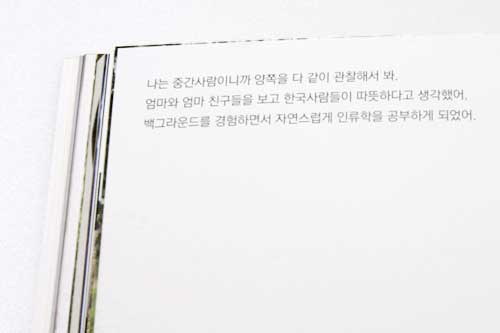 나는 중간사람이니까 양쪽을 다 같이 관찰해서 봐.
엄마와 엄마 친구들을 보고 한국사람들이 따뜻하다고 생각했어.
백그라운드를 경험하면서 자연스럽게 인류학을 공부하게 되었어.